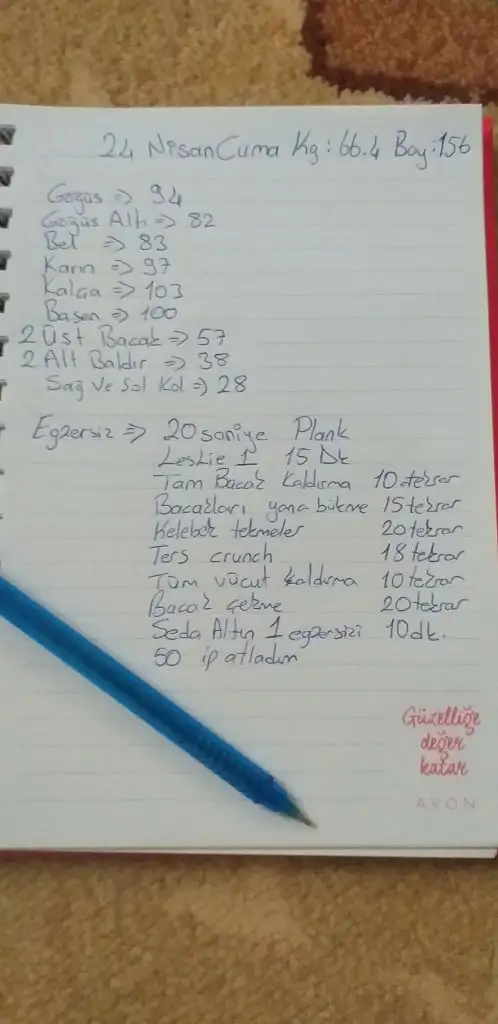 24 Nisan Cuma Kg: 66.4 Boy: 156
Göğüs => 94
Göğüs Altı => 82
Bel => 83
Karın => 97
Kalça => 103
Basen => 100
2 Üst Bacak => 57
2 Alt Baldır => 38
Sağ ve Sol Kol => 28
Egzersiz => 20 saniye Plank
Leslie 1 15 Dk
Tam Bacak Kaldırma 10 tekrar
Bacakları yana bükme 15 tekrar
Kelebek tekmeler 20 tekrar
Ters crunch 18 tekrar
Tüm vücut kaldırma 10 tekrar
Bacak çekme 20 tekrar
Seda Altın 1 egzersizi 10 dk.
50 ip atladım
Güzelliğe
değer
katar
AVON